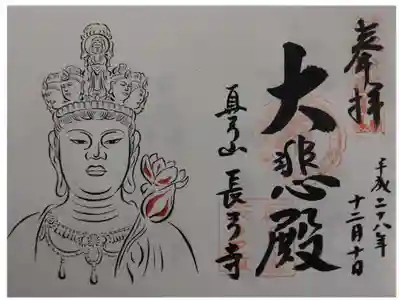 奉拝
平成二八年
十二月十日
大悲殿
真弓山 長弓寺